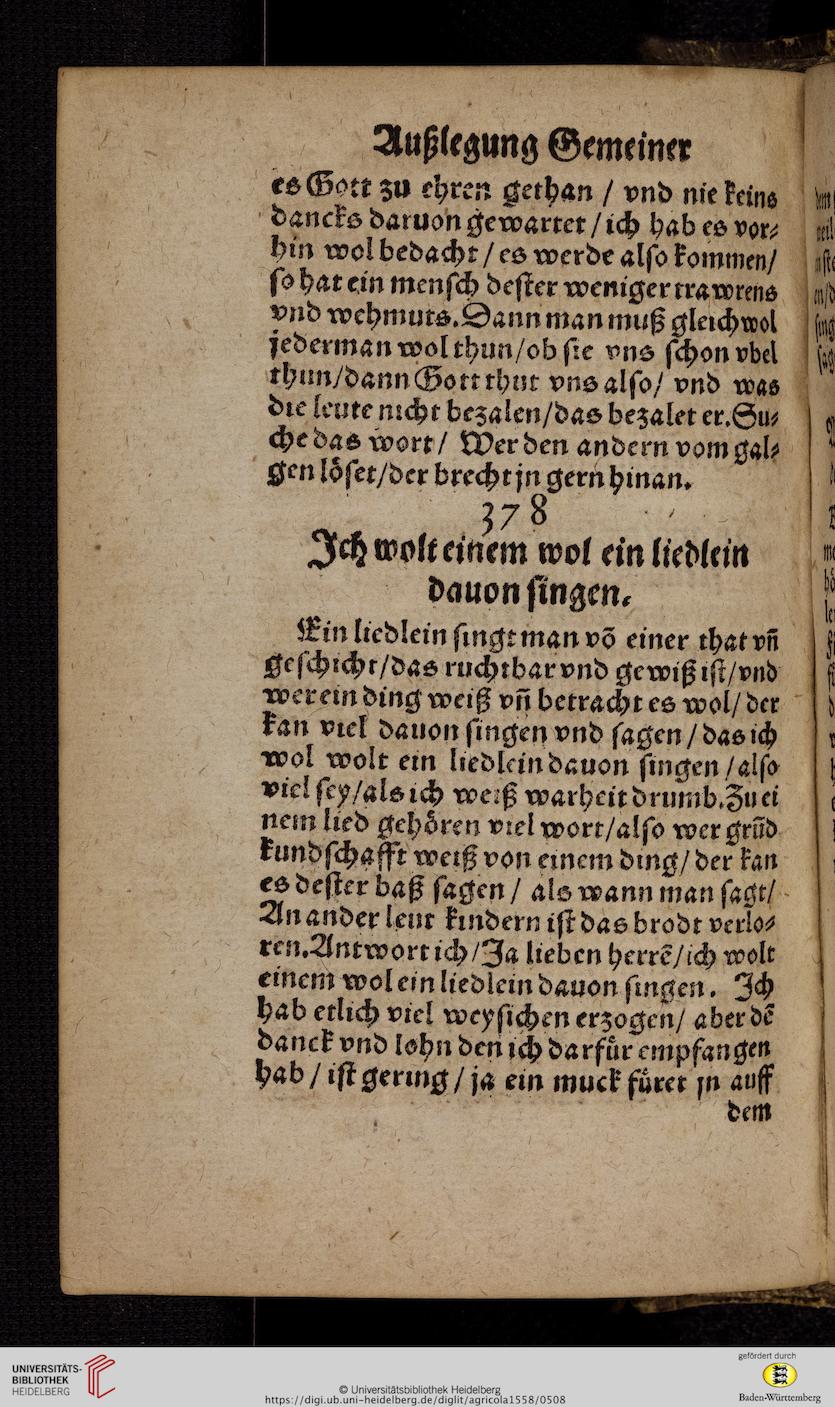 Außlegung Gemeiner
es Gott zu ehren gethan / vnd nie keins
dancks daruon gewartet / ich hab es vor⸗
hin wol bedacht / es werde also kommen /
so hat ein mensch dester weniger trawrens
vnd wehmuts. Dann man muß gleichwol
jederman wol thun / ob sie vns schon vbel
thun / dann Gott thut vns also / vnd was
die leute nicht bezalen / das bezalet er. Su⸗
che das wort / Wer den andern vom gal⸗
gen löset / der brecht jn gern hinan.
378
Ich wolt einem wol ein liedlein
dauon singen.
Ein liedlein singt man võ einer that vñ
geschicht / das ruchtbar vnd gewiß ist / vnd
wer ein ding weiß vñ betracht es wol / der
kan viel dauon singen vnd sagen / das ich
wol wolt ein liedlein dauon singen / also
viel sey / als ich weiß warheit drumb. Zu ei
nem lied gehören viel wort / also wer grũd
kundschafft weiß von einem ding / der kan
es dester baß sagen / als wann man sagt /
An ander leut kindern ist das brodt verlo⸗
ren. Antwort ich / Ja lieben herrẽ / ich wolt
einem wol ein liedlein dauon singen. Ich
hab etlich viel weysichen erzogen / aber dẽ
danck vnd lohn den ich darfür empfangen
hab / ist gering / ja ein muck füret jn auff
dem
UNIVERSITÄTS-
BIBLIOTHEK
HEIDELBERG
© Universitätsbibliothek Heidelberg
https://digi.ub.uni-heidelberg.de/diglit/agricola1558/0508
gefördert durch
Baden-Württemberg